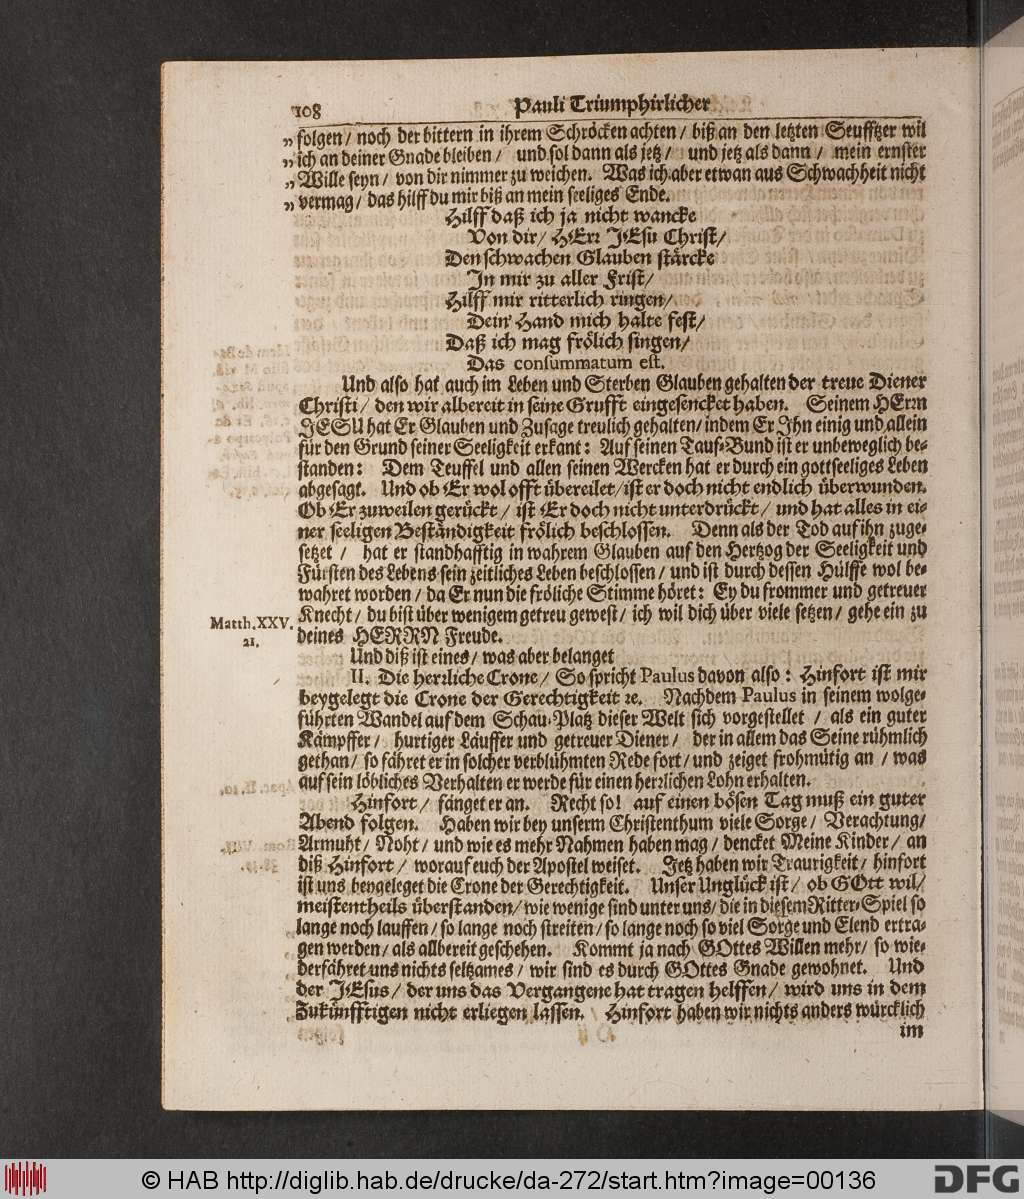 108 Pauli Triumphirlicher
„ folgen / noch der bittern in ihrem Schröcken achten / biß an den letzten Seufftzer wil
„ ich an deiner Gnade bleiben / und sol dann als jetz / und jetz als dann / mein ernster
„ Wille seyn / von dir nimmer zu weichen. Was ich aber etwan aus Schwachheit nicht
„ vermag / das hilff du mir biß an mein seeliges Ende.
Hilff daß ich ja nicht wancke
Von dir / HErr JEsu Christ /
Den schwachen Glauben stärcke
In mir zu aller Frist /
Hilff mir ritterlich ringen /
Dein' Hand mich halte fest /
Daß ich mag frölich singen /
Das consummatum est.
Und also hat auch im Leben und Sterben Glauben gehalten der treue Diener
Christi / den wir albereit in seine Grufft eingesencket haben. Seinem HErrn
JESU hat Er Glauben und Zusage treulich gehalten / indem Er Ihn einig und allein
für den Grund seiner Seeligkeit erkant: Auf seinen Tauf-Bund ist er unbeweglich be-
standen: Dem Teuffel und allen seinen Wercken hat er durch ein gottseeliges Leben
abgesagt. Und ob Er wol offt übereilet / ist er doch nicht endlich überwunden.
Ob Er zuweilen gerückt / ist Er doch nicht unterdrückt / und hat alles in ei-
ner seeligen Beständigkeit frölich beschlossen. Denn als der Tod auf ihn zuge-
setzet / hat er standhafftig in wahrem Glauben auf den Hertzog der Seeligkeit und
Fürsten des Lebens sein zeitliches Leben beschlossen / und ist durch dessen Hülffe wol be-
wahret worden / da Er nun die fröliche Stimme höret: Ey du frommer und getreuer
Knecht / du bist über wenigem getreu gewest / ich wil dich über viele setzen / gehe ein zu
deines HERRN Freude.
Matth. XXV.
21.
Und diß ist eines / was aber belanget
II. Die herrliche Crone / So spricht Paulus davon also: Hinfort ist mir
beygelegt die Crone der Gerechtigkeit ꝛc. Nachdem Paulus in seinem wolge-
führten Wandel auf dem Schau-Platz dieser Welt sich vorgestellet / als ein guter
Kämpffer / hurtiger Läuffer und getreuer Diener / der in allem das Seine rühmlich
gethan / so fähret er in solcher verblühmten Rede fort / und zeiget frohmütig an / was
auf sein löbliches Verhalten er werde für einen herrlichen Lohn erhalten.
Hinfort / fänget er an. Recht so! auf einen bösen Tag muß ein guter
Abend folgen. Haben wir bey unserm Christenthum viele Sorge / Verachtung /
Armuht / Noht / und wie es mehr Nahmen haben mag / dencket Meine Kinder / an
diß Hinfort / worauf euch der Apostel weiset. Jetz haben wir Traurigkeit / hinfort
ist uns beygeleget die Crone der Gerechtigkeit. Unser Unglück ist / ob GOtt wil /
meistentheils überstanden / wie wenige sind unter uns / die in diesem Ritter-Spiel so
lange noch lauffen / so lange noch streiten / so lange noch so viel Sorge und Elend ertra-
gen werden / als allbereit geschehen. Kommt ja nach GOttes Willen mehr / so wie-
derfähret uns nichts seltzames / wir sind es durch GOttes Gnade gewohnet. Und
der JEsus / der uns das Vergangene hat tragen helffen / wird uns in dem
Zukünfftigen nicht erliegen lassen. Hinfort haben wir nichts anders würcklich
im
© HAB http://diglib.hab.de/drucke/da-272/start.htm?image=00136
DFG